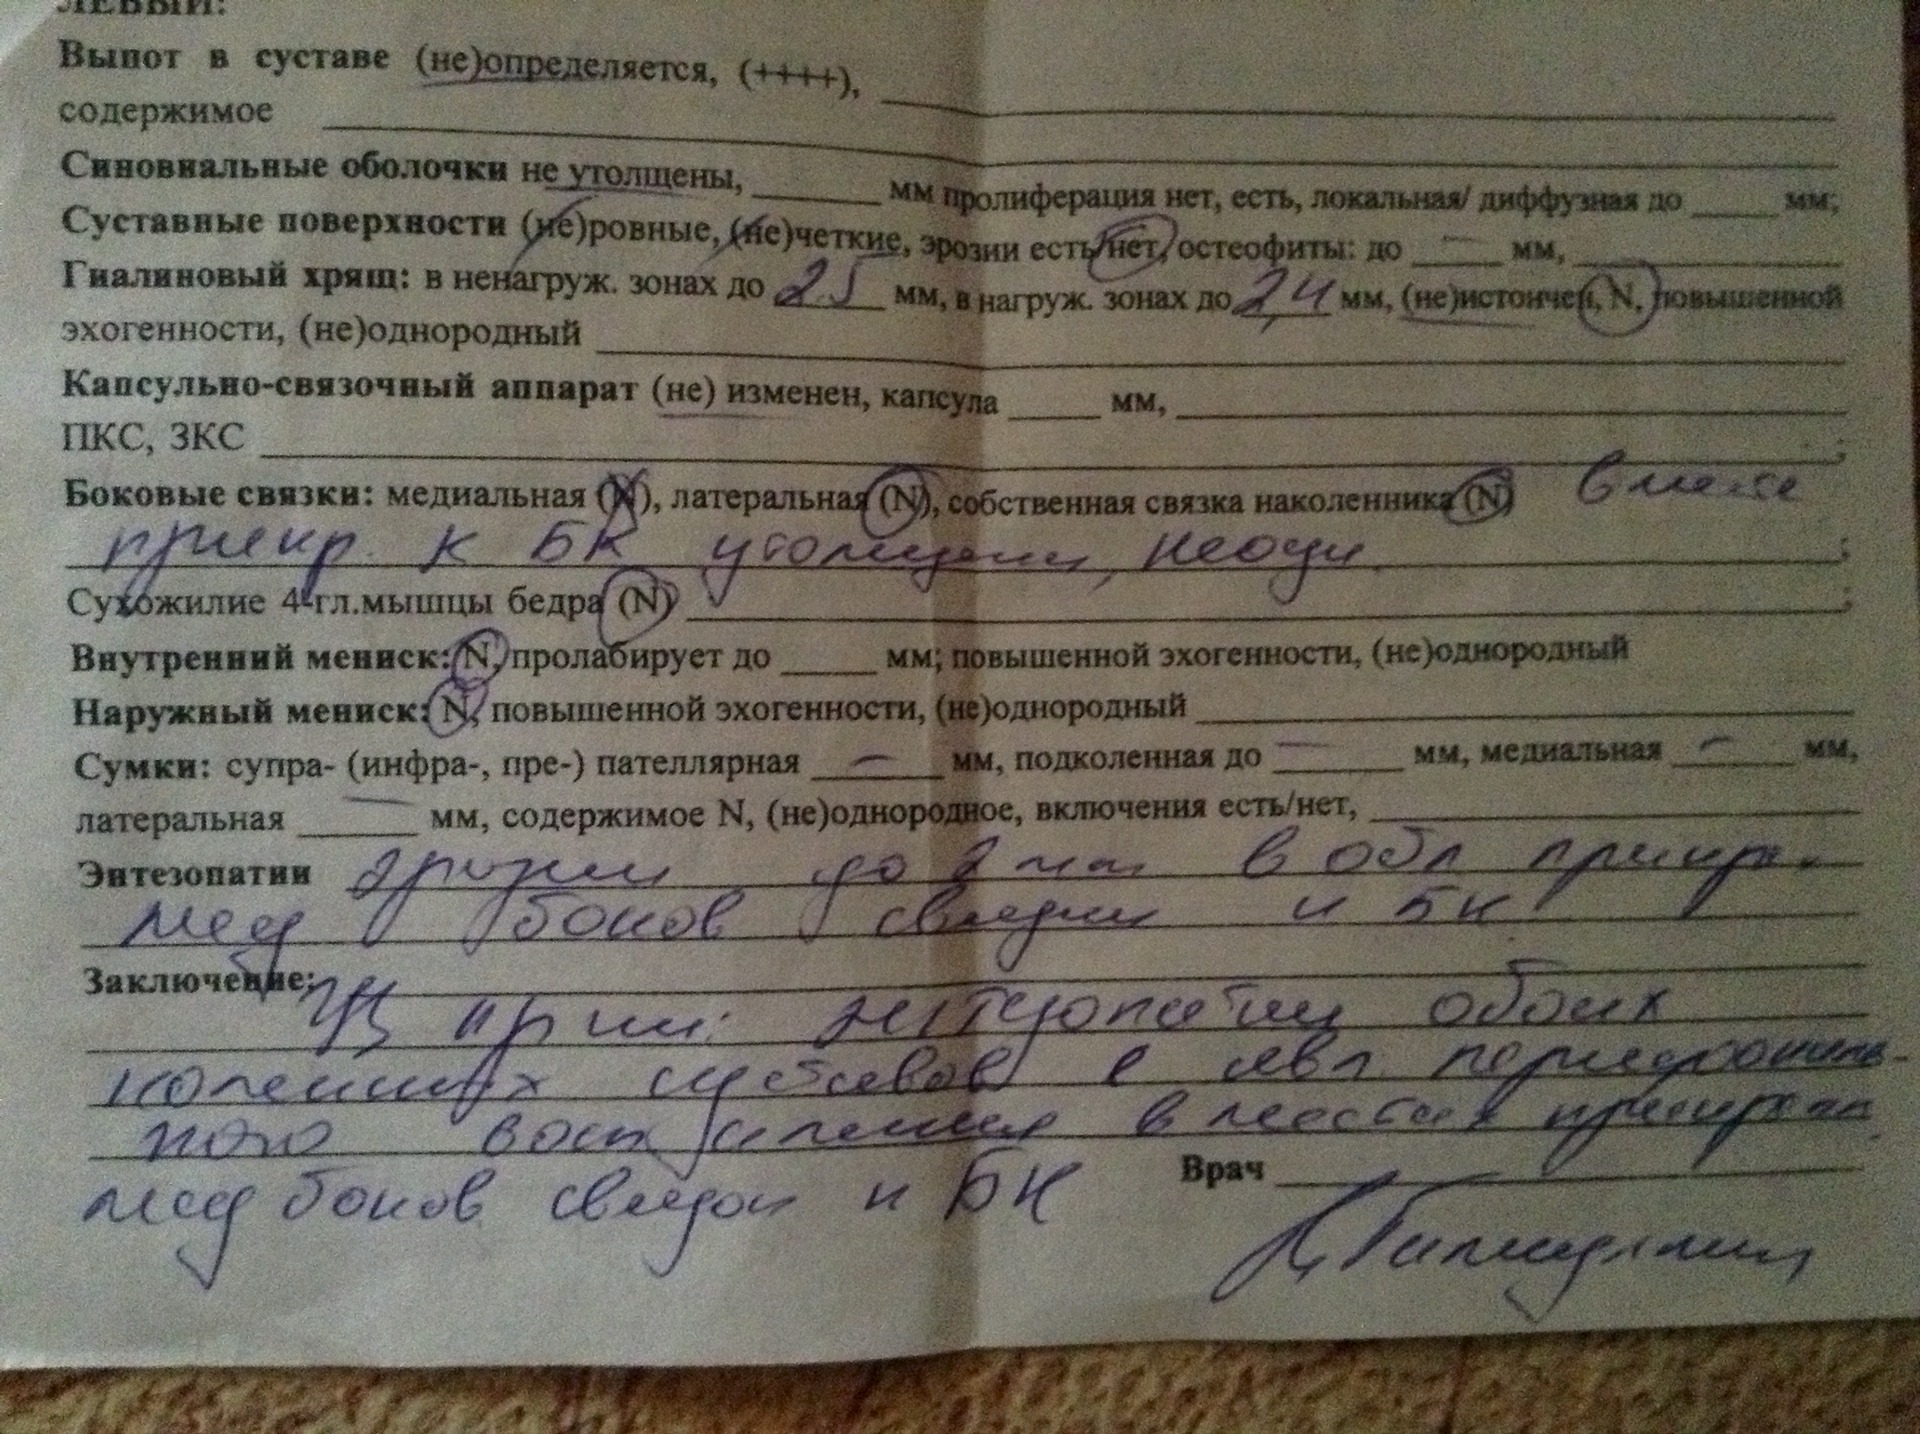 ЛЕВЫЙ:
Выпот в суставе (не)определяется, (++++), ____
содержимое ____
Синовиальные оболочки не утолщены, ____ мм пролиферация нет, есть, локальная/ диффузная до ____ мм;
Суставные поверхности (не)ровные, (не)четкие, эрозии есть/нет, остеофиты: до — мм, ____
Гиалиновый хрящ: в ненагруж. зонах до 2.5 мм, в нагруж. зонах до 2,4 мм, (не)истончен, N, повышенной
эхогенности, (не)однородный ____
Капсульно-связочный аппарат (не) изменен, капсула ____ мм, ____
ПКС, ЗКС ____;
Боковые связки: медиальная (N), латеральная (N), собственная связка наколенника (N) в месте
прикр. к БК утолщена, неодн. ;
Сухожилие 4-гл.мышцы бедра (N) ____;
Внутренний мениск: N, пролабирует до ____ мм; повышенной эхогенности, (не)однородный
Наружный мениск: N, повышенной эхогенности, (не)однородный ____
Сумки: супра- (инфра-, пре-) пателлярная — мм, подколенная до — мм, медиальная — мм,
латеральная — мм, содержимое N, (не)однородное, включения есть/нет, ____
Энтезопатии эрозии до 2 мм в обл прикр.
мед боков связки к БК
Заключение:
УЗ призн. энтезопатии обоих
коленных суставов с явл. перифокаль-
ного воспаления в местах прикрепл
мед боков связок к БК
Врач